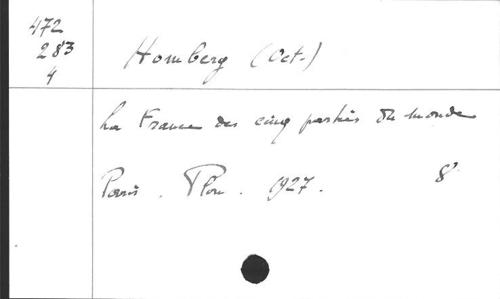 472
283
4
Homberg (Oct.)
La France des cinq parties du monde
Paris. Plon. 1927. 8°